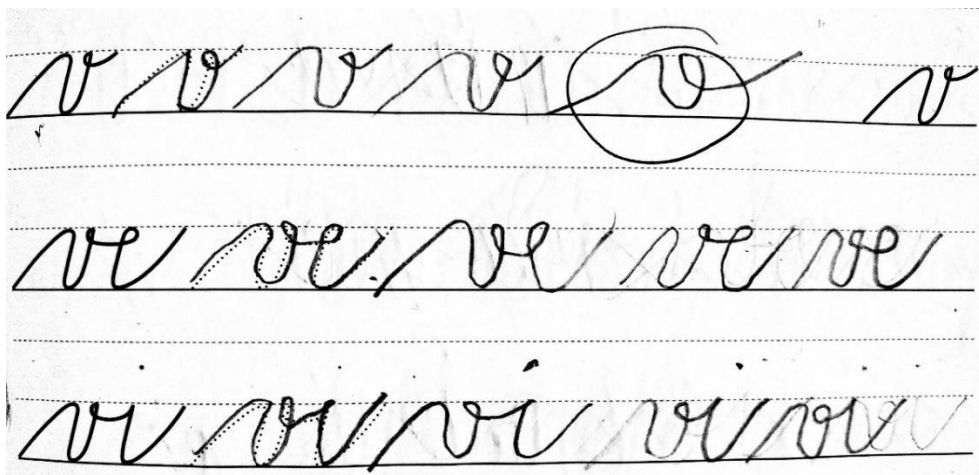 v v v v v v
ve ve ve ve ve
vi vi vi vi vi